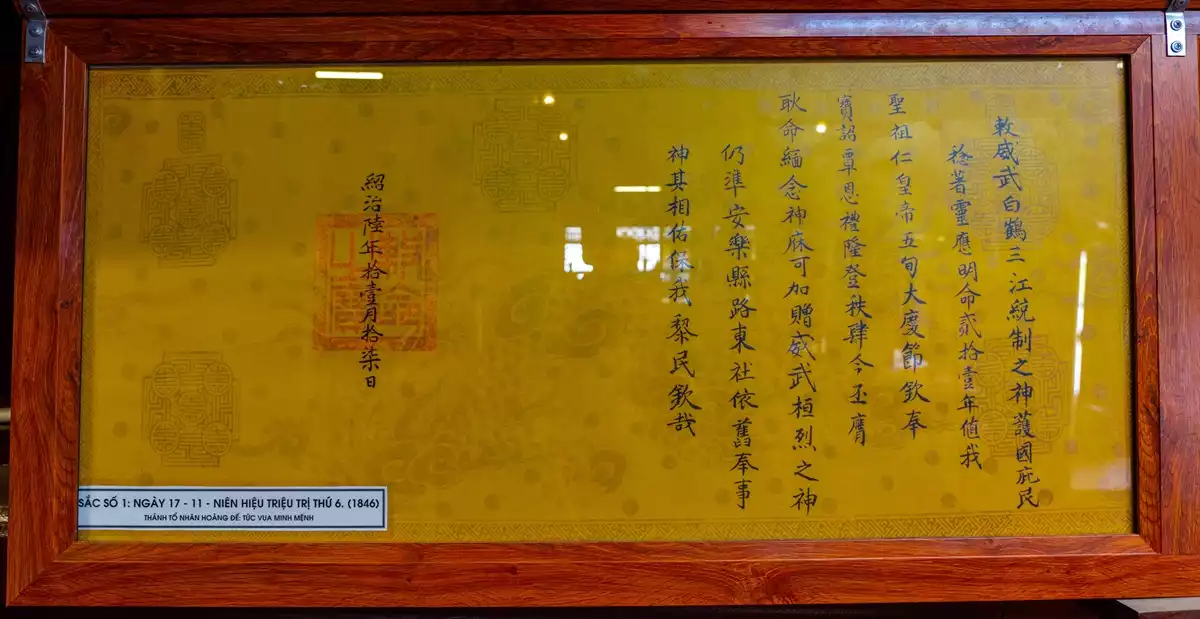 敕威武白鶴三江統制之神護國庇民
稔著靈應明命貳拾壹年值我
聖祖仁皇帝五旬大慶節欽奉
寶詔覃恩禮隆登秩肆今丕膺
耿命緬念神庥可加贈威武桓烈之神
仍準安樂縣路東社依舊奉事
神其相佑保我黎民欽哉
紹治陸年拾壹月拾柒日
SẮC SỐ 1: NGÀY 17 - 11 - NIÊN HIỆU TRIỆU TRỊ THỨ 6. (1846)
THÁNH TỔ NHÂN HOÀNG ĐẾ: TỨC VUA MINH MỆNH